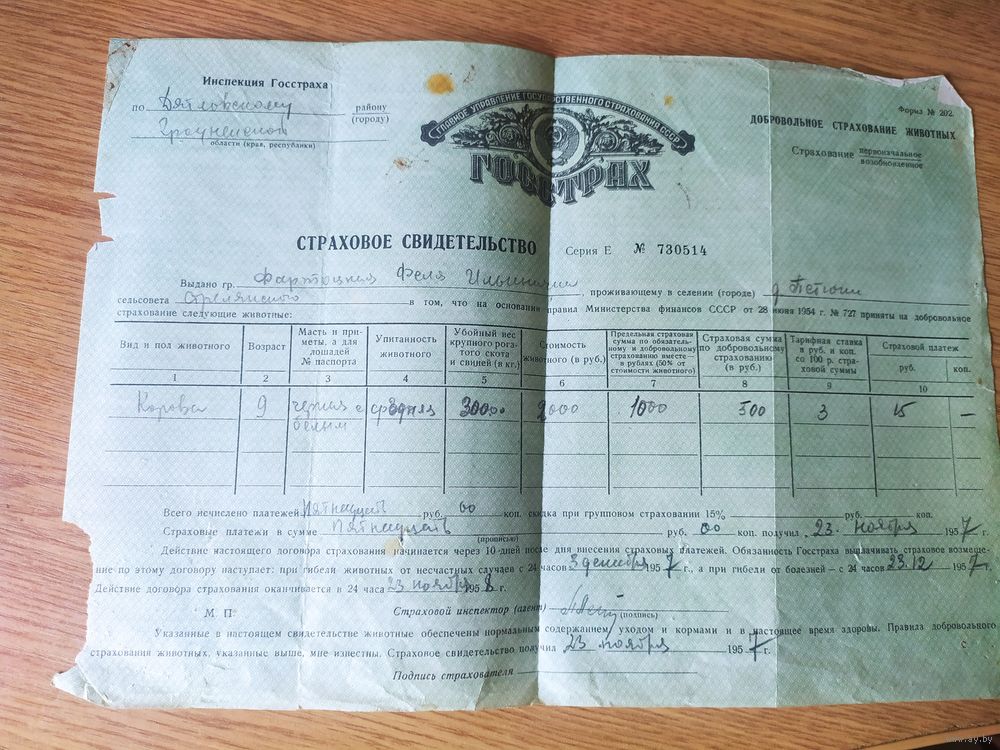 Инспекция Госстраха
по Дятловскому району
(городу)
Гродненской
области (края, республики)
ГЛАВНОЕ УПРАВЛЕНИЕ ГОСУДАРСТВЕННОГО СТРАХОВАНИЯ СССР
ГОССТРАХ
Форма № 202.
ДОБРОВОЛЬНОЕ СТРАХОВАНИЕ ЖИВОТНЫХ
Страхование первоначальное
возобновленное
СТРАХОВОЕ СВИДЕТЕЛЬСТВО Серия Е № 730514
Выдано гр. Феля , проживающему в селении (городе) д
сельсовета в том, что на основании правил Министерства финансов СССР от 28 июня 1954 г. № 727 приняты на добровольное
страхование следующие животные:
Вид и пол животного Возраст Масть и приметы, а для лошадей № паспорта Упитанность животного Убойный вес крупного рогатого скота и свиней (в кг.) Стоимость животного (в руб.) Предельная страховая сумма по обязательному и добровольному страхованию вместе — в рублях (50% от стоимости животного) Страховая сумма по добровольному страхованию (в руб.) Тарифная ставка в руб. и коп. со 100 р. страховой суммы Страховой платеж руб. коп.
1 2 3 4 5 6 7 8 9 10
Корова 9 черная с белым средняя 2000 1000 500 3 15 —
Всего исчислено платежей Пятнадцать руб. 00 коп. скидка при групповом страховании 15% руб. коп.
Страховые платежи в сумме Пятнадцать руб. 00 коп. получил 23 ноября 1957 г.
(прописью)
Действие настоящего договора страхования начинается через 10 дней после дня внесения страховых платежей. Обязанность Госстраха выплачивать страховое возмеще-
ние по этому договору наступает: при гибели животных от несчастных случаев с 24 часов 3 декабря 1957 г., а при гибели от болезней — с 24 часов 23.12 1957 г.
Действие договора страхования оканчивается в 24 часа 23 ноября 1958 г.
М. П. Страховой инспектор (агент)
(подпись)
Указанные в настоящем свидетельстве животные обеспечены нормальным содержанием, уходом и кормами и в настоящее время здоровы. Правила добровольного
страхования животных, указанные выше, мне известны. Страховое свидетельство получил 23 ноября 1957 г.
Подпись страхователя